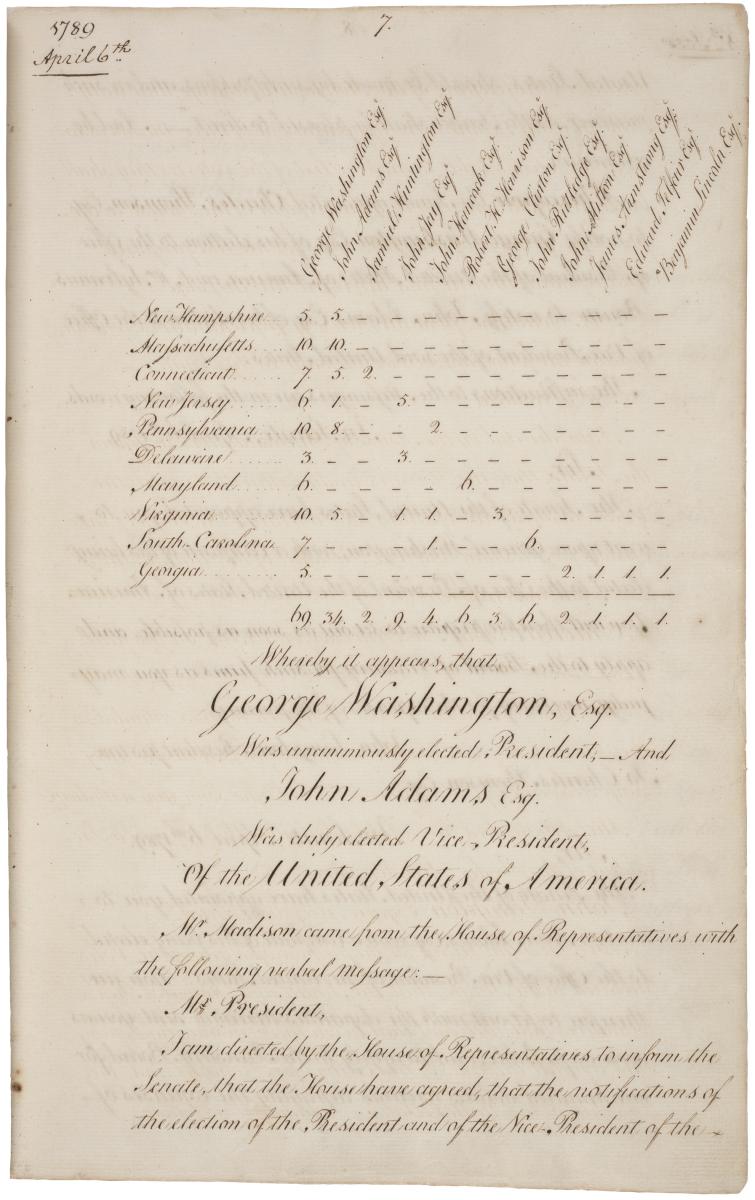 1789
7.
April 6th
George Washington Esqr
John Adams Esqr
Samuel Huntington Esqr
John Jay Esqr
John Hancock Esqr
Robert H. Harrison Esqr
George Clinton Esqr
John Rutledge Esqr
John Milton Esqr
James Armstrong Esqr
Edward Telfair Esqr
Benjamin Lincoln Esqr
New Hampshire 5. 5. – – – – – – – – – –
Massachusetts 10. 10. – – – – – – – – – –
Connecticut 7. 5. 2. – – – – – – – – –
New Jersey 6. 1. – 5. – – – – – – – –
Pennsylvania 10. 8. – – 2. – – – – – – –
Delaware 3. – – 3. – – – – – – – –
Maryland 6. – – – – 6. – – – – – –
Virginia 10. 5. – 1. 1. – 3. – – – – –
South Carolina 7. – – – 1. – – 6. – – – –
Georgia 5. – – – – – – – 2. 1. 1. 1.
69. 34. 2. 9. 4. 6. 3. 6. 2. 1. 1. 1.
Whereby it appears, that
George Washington, Esq.
Was unanimously elected President, – And
John Adams Esq.
Was duly elected Vice-President,
Of the United States of America.
Mr. Madison came from the House of Representatives with
the following verbal message: –
Mr. President,
I am directed by the House of Representatives to inform the
Senate, that the House have agreed, that the notifications of
the election of the President and of the Vice-President of the –